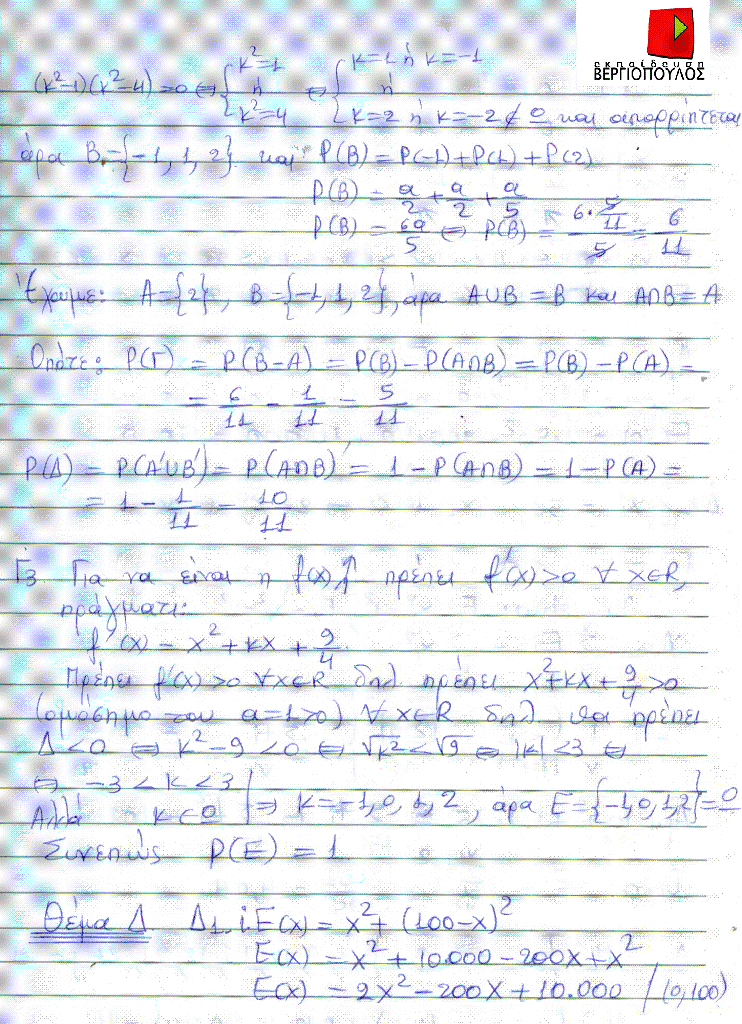 εκπαίδευση
ΒΕΡΓΙΟΠΟΥΛΟΣ
(k²-1)(k²-4)=0 ⇔ { k²=1 ή k²=4 ⇔ { k=1 ή k=-1 ή k=2 ή k=-2 ∉ Ω και απορρίπτεται
άρα B={-1,1,2} και P(B)=P(-1)+P(1)+P(2)
P(B) = α/2 + α/2 + α/5
P(B) = 6α/5 ⇔ P(B) = (6·5/11)/5 = 6/11
Έχουμε: A={2}, B={-1,1,2}, άρα A∪B=B και A∩B=A
Οπότε: P(Γ) = P(B-A) = P(B)-P(A∩B) = P(B)-P(A) =
= 6/11 - 1/11 = 5/11
P(Δ) = P(A'∪B') = P(A∩B)' = 1-P(A∩B) = 1-P(A) =
= 1 - 1/11 = 10/11
Γ3 Για να είναι η f(x)↑ πρέπει f'(x)>0 ∀ x∈R,
πράγματι:
f'(x) = x²+kx+9/4
Πρέπει f'(x)>0 ∀x∈R δηλ πρέπει x²+kx+9/4>0
(ομόσημο του α=1>0) ∀x∈R δηλ θα πρέπει
Δ<0 ⇔ k²-9<0 ⇔ √k²<√9 ⇔ |k|<3 ⇔
⇔ -3<k<3
Αλλά k∈Ω | ⇒ k=-1,0,1,2, άρα E={-1,0,1,2}=Ω
Συνεπώς P(E)=1
Θέμα Δ Δ1. i. E(x) = x²+(100-x)²
E(x) = x²+10.000-200x+x²
E(x) = 2x²-200x+10.000 / (0,100)